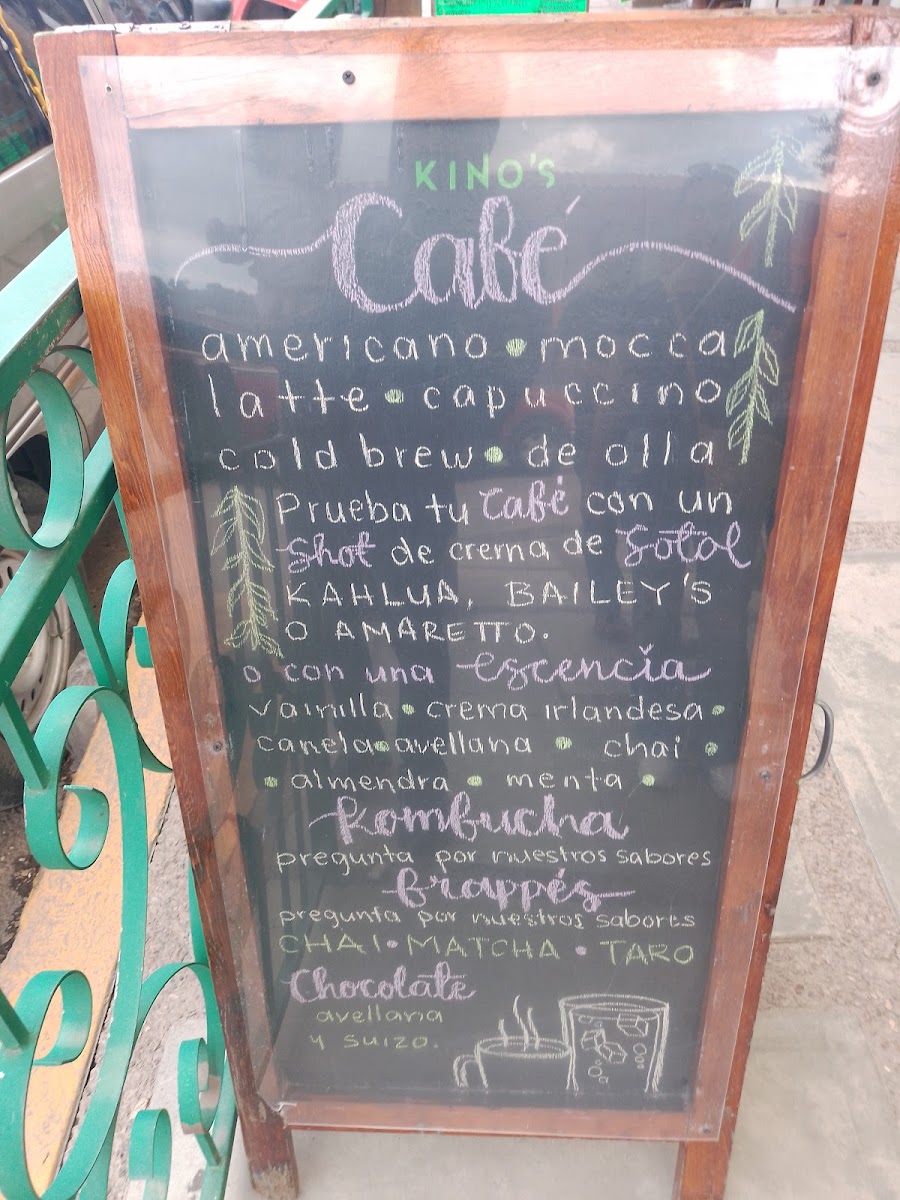 KINO'S
Café
americano • mocca
latte • capuccino
cold brew • de olla
Prueba tu Café con un
Shot de crema de Sotol
KAHLUA, BAILEY'S
O AMARETTO.
o con una escencia
vainilla • crema irlandesa •
canela • avellana • chai •
• almendra • menta •
Kombucha
pregunta por nuestros sabores
frappés
pregunta por nuestros sabores
CHAI • MATCHA • TARO
Chocolate
avellana
y suizo.